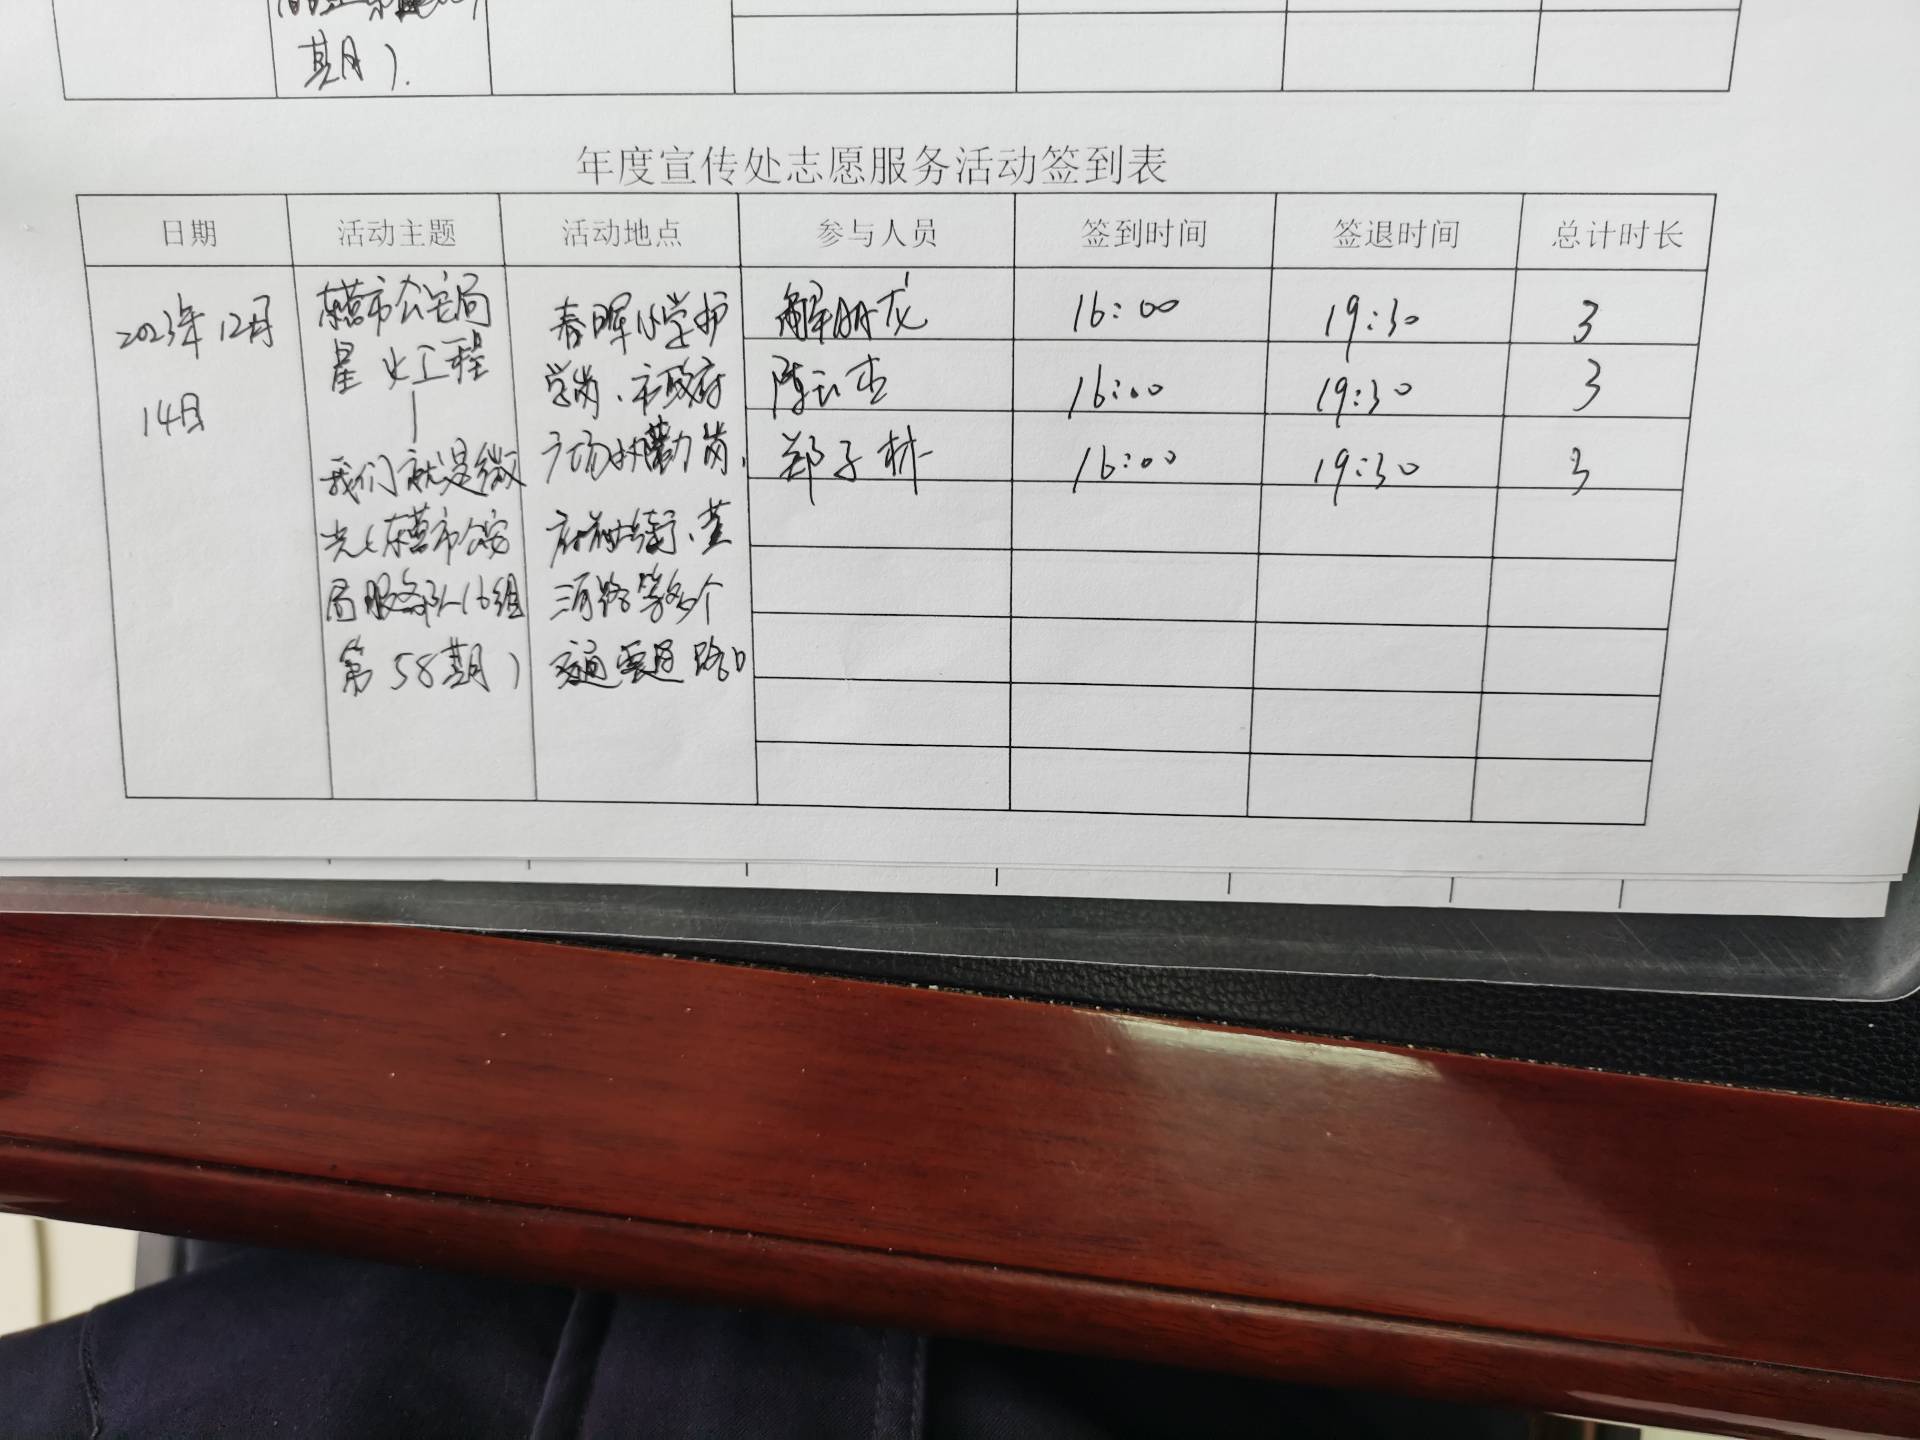 期）.
年度宣传处志愿服务活动签到表
日期 活动主题 活动地点 参与人员 签到时间 签退时间 总计时长
2023年12月
14日
东营市公安局
星火工程
—
我们就是微
光（东营市公安
局服务队16组
第58期）
春晖小学护
学岗、市政府
广场执勤岗、
府前大街、黄
河路等多个
交通要道路口
解朋龙 16:00 19:30 3
陈云杰 16:00 19:30 3
郑子林 16:00 19:30 3